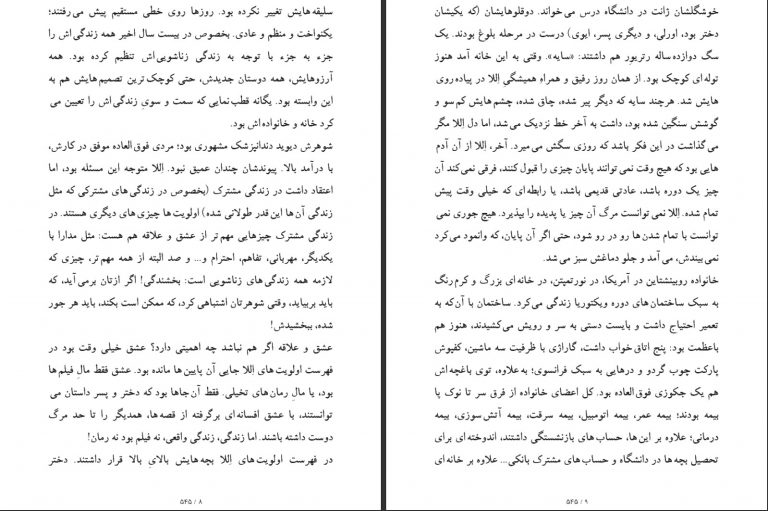 سلیقه‌هایش تغییر نکرده بود. روزها روی خطی مستقیم پیش می‌رفتند؛
یکنواخت و منظم و عادی. بخصوص در بیست سال اخیر همه زندگی‌اش را
جزء به جزء با توجه به زندگی زناشویی‌اش تنظیم کرده بود. همه
آرزوهایش، همه دوستان جدیدش، حتی کوچک ترین تصمیم‌هایش هم به
این وابسته بود. یگانه قطب‌نمایی که سمت و سوی زندگی‌اش را تعیین می
کرد خانه و خانواده‌اش بود.
شوهرش دیوید دندانپزشک مشهوری بود؛ مردی فوق‌العاده موفق در کارش،
با درآمد بالا. پیوندشان چندان عمیق نبود. اِللا متوجه این مسئله بود، اما
اعتقاد داشت در زندگی مشترک (بخصوص در زندگی‌های مشترکی که مثل
زندگی آن‌ها این قدر طولانی شده) اولویت‌ها چیزهای دیگری هستند. در
زندگی مشترک چیزهایی مهم‌تر از عشق و علاقه هم هست: مثل مدارا با
یکدیگر، مهربانی، تفاهم، احترام و... و صد البته از همه مهم‌تر، چیزی که
لازمه همه زندگی‌های زناشویی است: بخشندگی! اگر ازتان برمی‌آید، که
باید بربیاید، وقتی شوهرتان اشتباهی کرد، که ممکن است بکند، باید هر جور
شده، ببخشیدش!
عشق و علاقه اگر هم نباشد چه اهمیتی دارد؟ عشق خیلی وقت بود در
فهرست اولویت‌های اِللا جایی آن پایین‌ها مانده بود. عشق فقط مالِ فیلم‌ها
بود، یا مالِ رمان‌های تخیلی. فقط آن‌جاها بود که دختر و پسر داستان می
توانستند، با عشق افسانه‌ای برگرفته از قصه‌ها، همدیگر را تا حد مرگ
دوست داشته باشند. اما زندگی، زندگی واقعی، نه فیلم بود نه رمان!
در فهرست اولویت‌های اِللا بچه‌هایش بالایِ بالا قرار داشتند. دختر
۸ / ۵۴۵
خوشگلشان ژانت در دانشگاه درس می‌خواند. دوقلوهایشان (که یکیشان
دختر بود، اورلی، و دیگری پسر، ایوی) درست در مرحله بلوغ بودند. یک
سگ دوازده‌ساله رتریور هم داشتند: «سایه». وقتی به این خانه آمد هنوز
توله‌ای کوچک بود. از همان روز رفیق و همراهِ همیشگیِ اِللا در پیاده‌روی
هایش شد. هرچند سایه که دیگر پیر شده، چاق شده، چشم‌هایش کم‌سو و
گوشش سنگین شده بود، داشت به آخر خط نزدیک می‌شد، اما دل اِللا مگر
می‌گذاشت در این فکر باشد که روزی سگش می‌میرد. آخر، اِللا از آن آدم
هایی بود که هیچ وقت نمی‌توانند پایان چیزی را قبول کنند، فرقی نمی‌کند آن
چیز یک دوره باشد، عادتی قدیمی باشد، یا رابطه‌ای که خیلی وقت پیش
تمام شده. اِللا نمی‌توانست مرگ آن چیز یا پدیده را بپذیرد. هیچ جوری نمی
توانست با تمام شدن‌ها رو در رو شود، حتی اگر آن پایان، که وانمود می‌کرد
نمی‌بیندش، می‌آمد و جلو دماغش سبز می‌شد.
خانواده روبینشتاین در آمریکا، در نورتمپتن، در خانه‌ای بزرگ و کرم‌رنگ
به سبک ساختمان‌های دوره ویکتوریا زندگی می‌کرد. ساختمان با آن‌که به
تعمیر احتیاج داشت و بایست دستی به سر و رویش می‌کشیدند، هنوز هم
باعظمت بود: پنج اتاق‌خواب داشت، گاراژی با ظرفیت سه ماشین، کفپوش
پارکت چوب گردو و درهایی به سبک فرانسوی؛ به‌علاوه، توی باغچه‌اش
هم یک جکوزی فوق‌العاده بود. کل اعضای خانواده از فرق سر تا نوک پا
بیمه بودند؛ بیمه عمر، بیمه اتومبیل، بیمه سرقت، بیمه آتش‌سوزی، بیمه
درمانی؛ علاوه بر این‌ها، حساب‌های بازنشستگی داشتند، اندوخته‌ای برای
تحصیل بچه‌ها در دانشگاه و حساب‌های مشترک بانکی... علاوه بر خانه‌ای
۹ / ۵۴۵